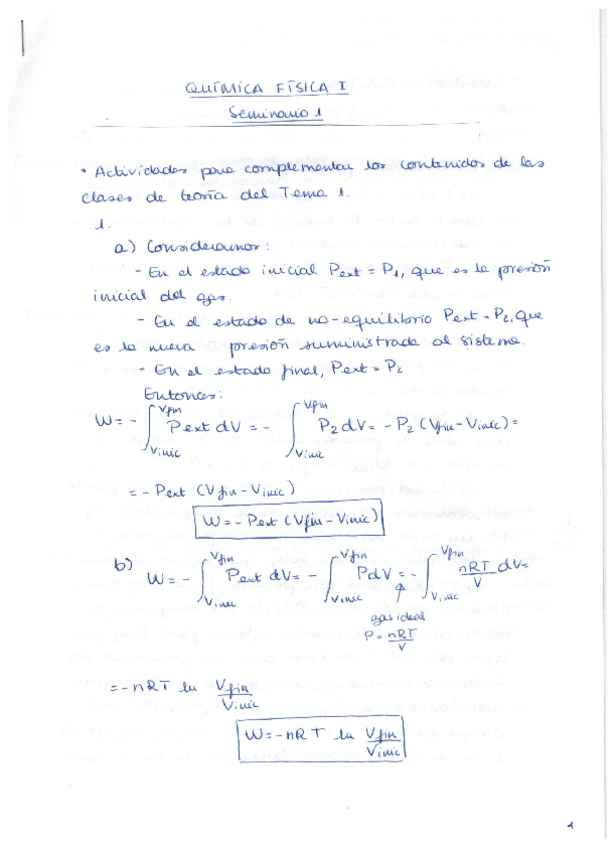 QUÍMICA FÍSICA I
Seminario 1
• Actividades para complementar los contenidos de las
clases de teoría del Tema 1.
1.
a) Consideramos:
- En el estado inicial Pext = P1, que es la presión
inicial del gas.
- En el estado de no-equilibrio Pext = P2, que
es la nueva presión suministrada al sistema.
- En el estado final, Pext = P2
Entonces:
W = - ∫Vinic^Vfin Pext dV = - ∫Vinic^Vfin P2 dV = - P2 (Vfin - Vinic) =
= - Pext (Vfin - Vinic)
W = - Pext (Vfin - Vinic)
b) W = - ∫Vinic^Vfin Pext dV = - ∫Vinic^Vfin PdV = - ∫Vinic^Vfin nRT/V dV =
gas ideal
P = nRT/V
= - nRT ln Vfin/Vinic
W = - nRT ln Vfin/Vinic
1